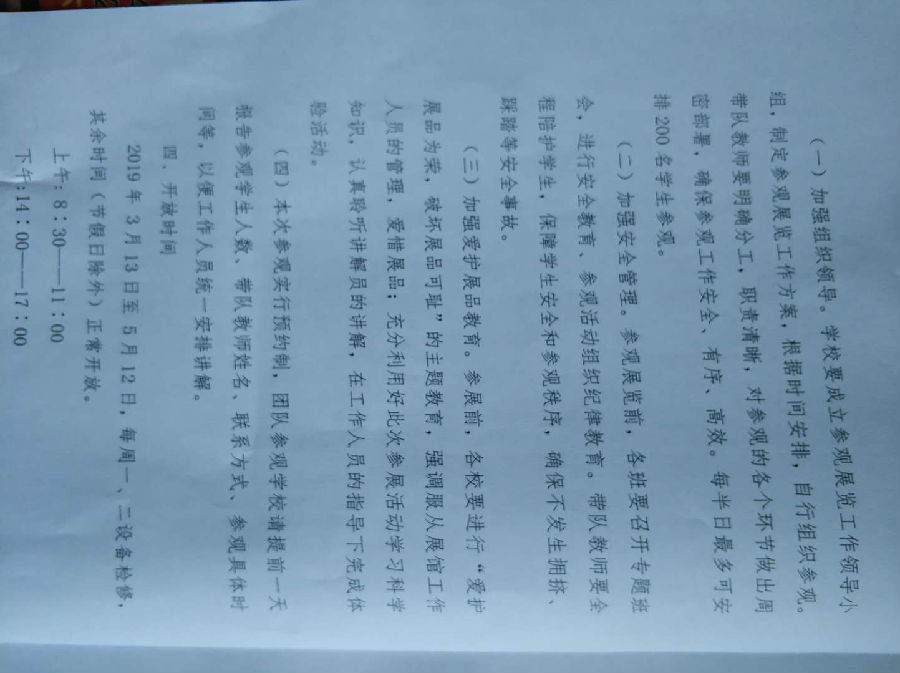 （一）加强组织领导。学校要成立参观展览工作领导小
组，制定参观展览工作方案，根据时间安排，自行组织参观。
带队教师要明确分工，职责清晰，对参观的各个环节做出周
密部署，确保参观工作安全、有序、高效。每半日最多可安
排200名学生参观。
（二）加强安全管理。参观展览前，各班要召开专题班
会，进行安全教育、参观活动组织纪律教育。带队教师要全
程陪护学生，保障学生安全和参观秩序，确保不发生拥挤、
踩踏等安全事故。
（三）加强爱护展品教育。参展前，各校要进行“爱护
展品为荣，破坏展品可耻”的主题教育，强调服从展馆工作
人员的管理，爱惜展品；充分利用好此次参展活动学习科学
知识，认真聆听讲解员的讲解，在工作人员的指导下完成体
验活动。
（四）本次参观实行预约制，团队参观学校请提前一天
报告参观学生人数、带队教师姓名、联系方式、参观具体时
间等，以便工作人员统一安排讲解。
四、开放时间
2019年3月13日至5月12日，每周一、二设备检修，
其余时间（节假日除外）正常开放。
上午：8：30——11：00
下午：14：00——17：00